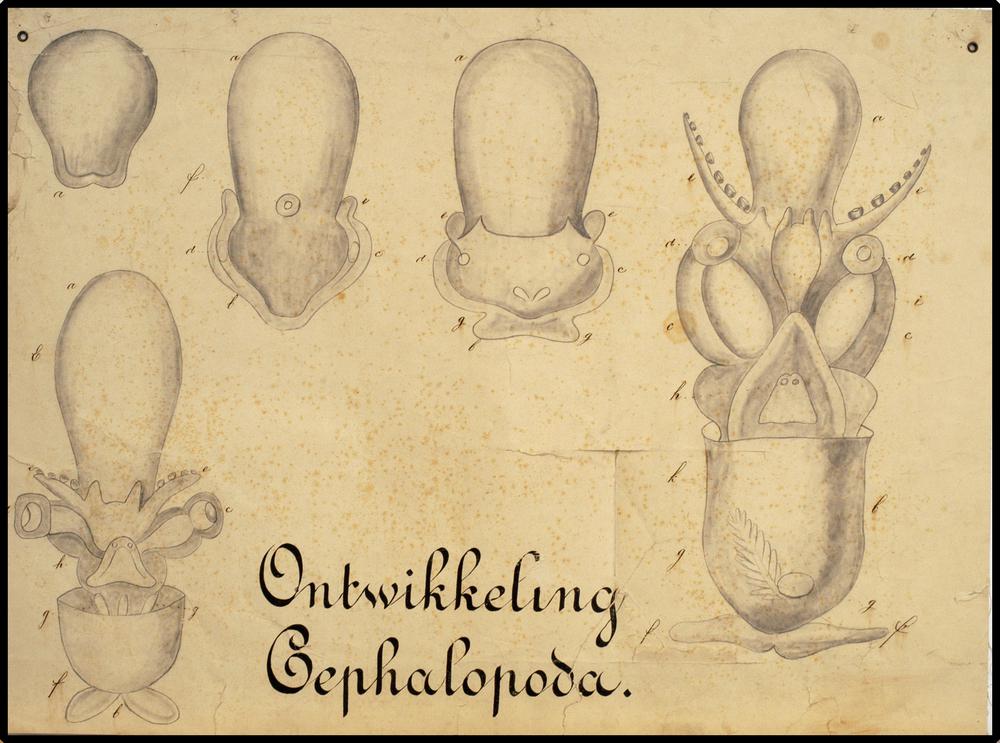 a
a
f.
e
d
c
b
a
e
e
d
c
g
g
f
a
e
e
d.
d
i
c
c
h.
k
b
g
g
f
f
a
b
e
e
c
h
g
g
f
b
Ontwikkeling
Cephalopoda.